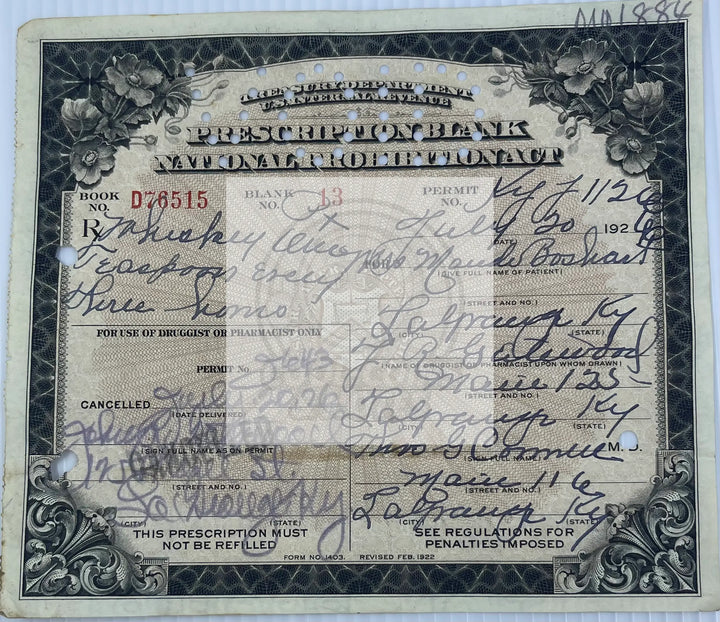 TREASURY DEPARTMENT
U.S. INTERNAL REVENUE
PRESCRIPTION BLANK
NATIONAL PROHIBITION ACT
BOOK NO. D76515 BLANK NO. 13 PERMIT NO. Ky J 1126
R Whiskey July 20 1926
(DATE)
Teaspoon every FOR Maude
(GIVE FULL NAME OF PATIENT)
three
(STREET AND NO.)
Lagrange Ky
(CITY) (STATE)
FOR USE OF DRUGGIST OR PHARMACIST ONLY
(NAME OF DRUGGIST OR PHARMACIST UPON WHOM DRAWN)
PERMIT NO.
Main 125
(STREET AND NO.)
CANCELLED July 20, 26
(DATE DELIVERED)
Lagrange Ky
(CITY) (STATE)
(SIGN FULL NAME AS ON PERMIT)
M. D.
(SIGN FULL NAME)
St.
(STREET AND NO.)
Main 116
(STREET AND NO.)
Ky
(CITY) (STATE)
Lagrange Ky
(CITY) (STATE)
THIS PRESCRIPTION MUST NOT BE REFILLED
SEE REGULATIONS FOR PENALTIES IMPOSED
FORM NO. 1403. REVISED FEB. 1922